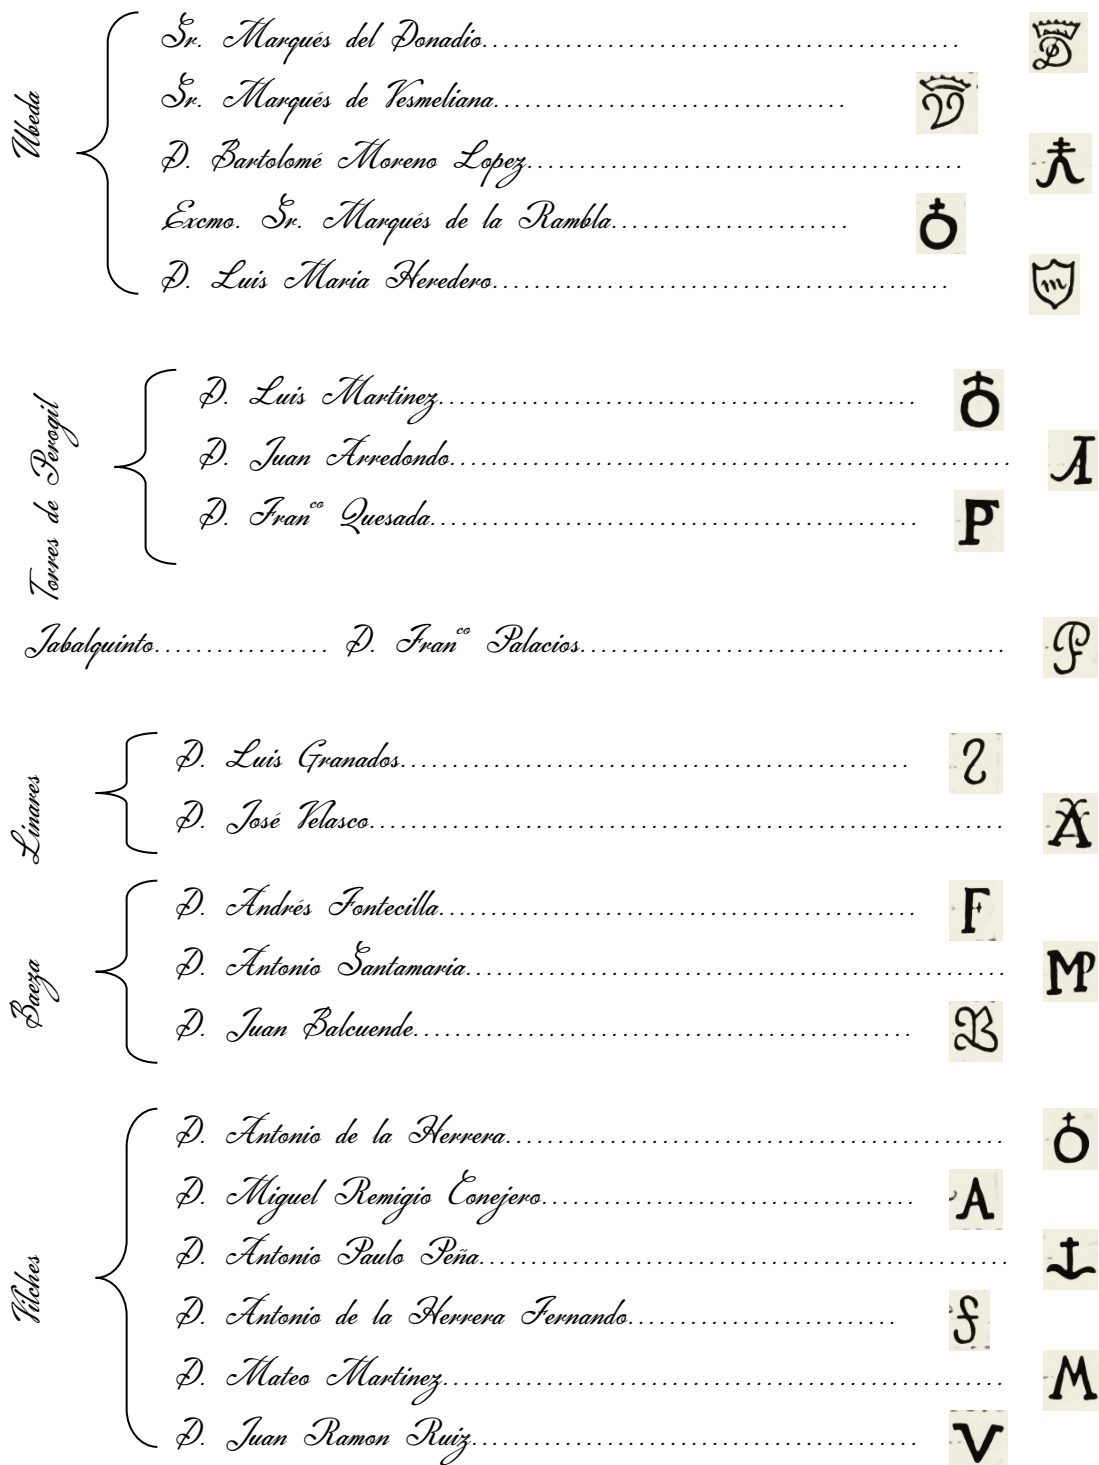 Ubeda
Sr. Marqués del Donadio................................................
Sr. Marqués de Vesmeliana...................................
D. Bartolomé Moreno Lopez...........................................
Excmo. Sr. Marqués de la Rambla.......................
m
D. Luis Maria Heredero.............................................
Torres de Perogil
D. Luis Martinez...............................................
D. Juan Arredondo....................................................... A
D. Franco Quesada................................................ P
Jabalquinto................. D. Franco Palacios.......................................... P
Linares
D. Luis Granados..................................................
D. José Velasco............................................................... A
Baeza
D. Andrés Fontecilla............................................... F
D. Antonio Santamaria..................................................... MP
D. Juan Balcuende................................................. B
Vilches
D. Antonio de la Herrera.................................................
D. Miguel Remigio Conejero..................................... A
D. Antonio Paulo Peña....................................................
D. Antonio de la Herrera Fernando.......................... f
D. Mateo Martinez....................................................... M
D. Juan Ramon Ruiz............................................ V